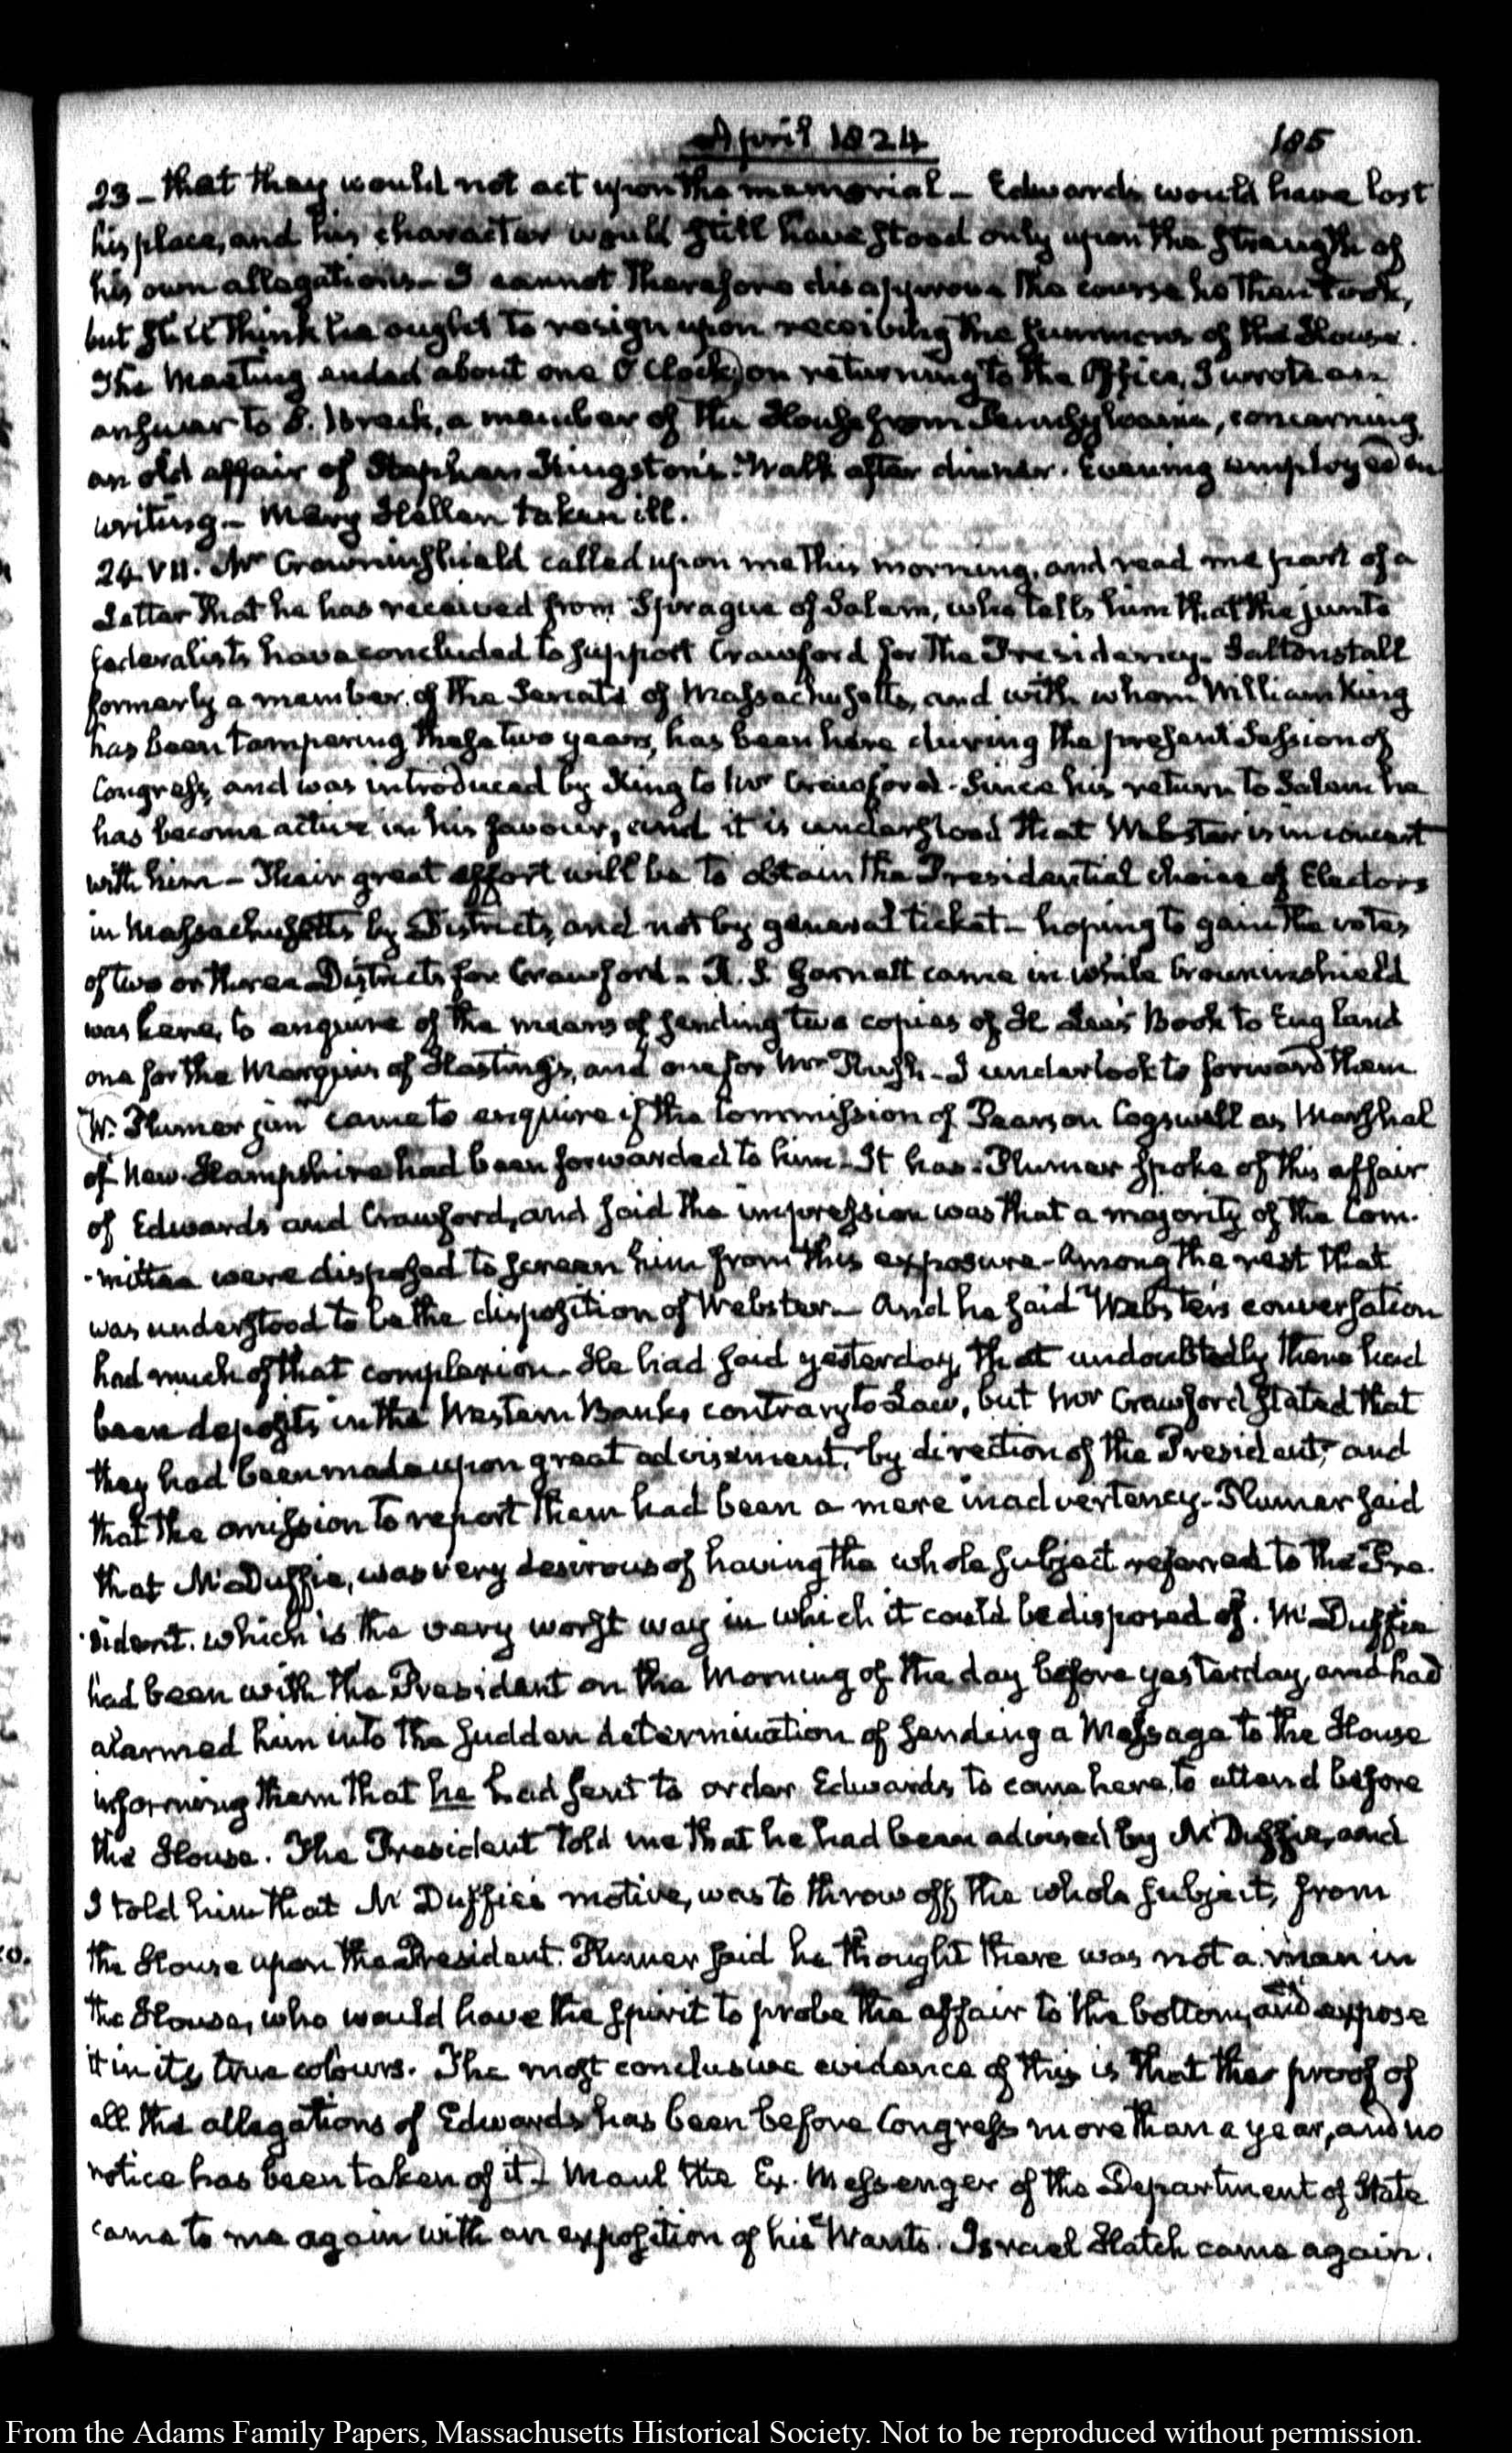 April 1824
185
23 - that they would not act upon the memorial - Edwards would have lost
his place, and his character would still have stood only upon the strength of
his own allegations - I cannot therefore disapprove the course he then took,
but still think he ought to resign upon receiving the summons of the House.
The Meeting ended about one O'Clock, on returning to the Office, I wrote an
answer to S. Breck, a member of the House from Pennsylvania, concerning
an old affair of Stephen Kingston's. Walk after dinner. Evening employed in
writing - Mary Hellen taken ill.
24. VII. Mr Crowninshield called upon me this morning, and read me part of a
Letter that he has received from Sprague of Salem, who tells him that the junto
federalists have concluded to support Crawford for the Presidency. Saltonstall
formerly a member of the Senate of Massachusetts, and with whom William King
has been tampering these two years, has been here during the present Session of
Congress, and was introduced by King to Mr Crawford. Since his return to Salem he
has become active in his favour, and it is understood that Webster is in concert
with him - Their great effort will be to obtain the Presidential choice of Electors
in Massachusetts by Districts, and not by general ticket - hoping to gain the votes
of two or three Districts for Crawford - R. S. Garnett came in while Crowninshield
was here, to enquire of the means of sending two copies of H. Lee's Book to England
one for the Marquis of Hastings, and one for Mr Rush - I undertook to forward them
W. Plumer junr came to enquire if the Commission of Pearson Cogswell as Marshal
of New-Hampshire had been forwarded to him - It has - Plumer spoke of this affair
of Edwards and Crawford, and said the impression was that a majority of the Com-
-mittee were disposed to screen him from this exposure - Among the rest that
was understood to be the disposition of Webster - And he said Webster's conversation
had much of that complexion - He had said yesterday, that undoubtedly there had
been deposits in the Western Banks contrary to Law, but Mr Crawford stated that
they had been made upon great advisement, by direction of the President, and
that the omission to report them had been a mere inadvertency - Plumer said
that McDuffie, was very desirous of having the whole subject referred to the Pre-
-sident. which is the very worst way in which it could be disposed of. McDuffie
had been with the President on the Morning of the day before yesterday, and had
alarmed him into the sudden determination of sending a Message to the House
informing them that he had sent to order Edwards to come here, to attend before
the House. The President told me that he had been advised by McDuffie, and
I told him that McDuffie's motive, was to throw off the whole subject, from
the House upon the President. Plumer said he thought there was not a man in
the House, who would have the spirit to probe the affair to the bottom, and expose
it in its true colours. The most conclusive evidence of this is that the proof of
all the allegations of Edwards has been before Congress more than a year, and no
notice has been taken of it - Maul the Ex. Messenger of the Department of State
came to me again with an exposition of his Wants. Israel Hatch came again.
From the Adams Family Papers, Massachusetts Historical Society. Not to be reproduced without permission.